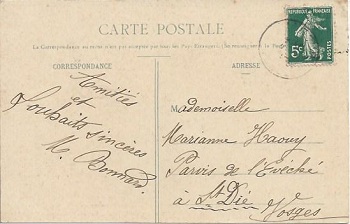 CARTE POSTALE
La Correspondance au recto n'est pas acceptée par tous les Pays Etrangers.
CORRESPONDANCE
ADRESSE
REPUBLIQUE FRANÇAISE
5c
Amitiés
et
Souhaits sincères
M. Bonnard
Mademoiselle
Marianne Haouy
Parvis de l'Evêché
à St Dié
Vosges